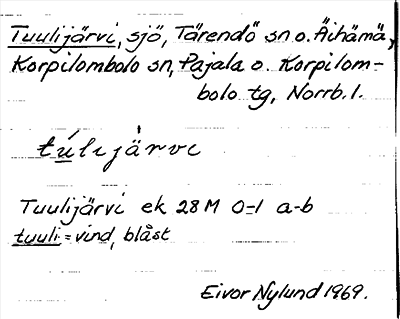 Tuulijärvi, sjö, Tärendö sn o. Äihämä,
Korpilombolo sn, Pajala o. Korpilom-
bolo tg, Norrb. l.
túlijàrvi
Tuulijärvi ek 28 M 0-1 a-b
tuuli = vind, blåst
Eivor Nylund 1969.